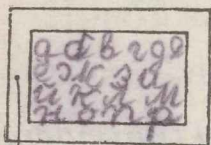 а б в г д е
ё ж з и
й к л м
н о п р